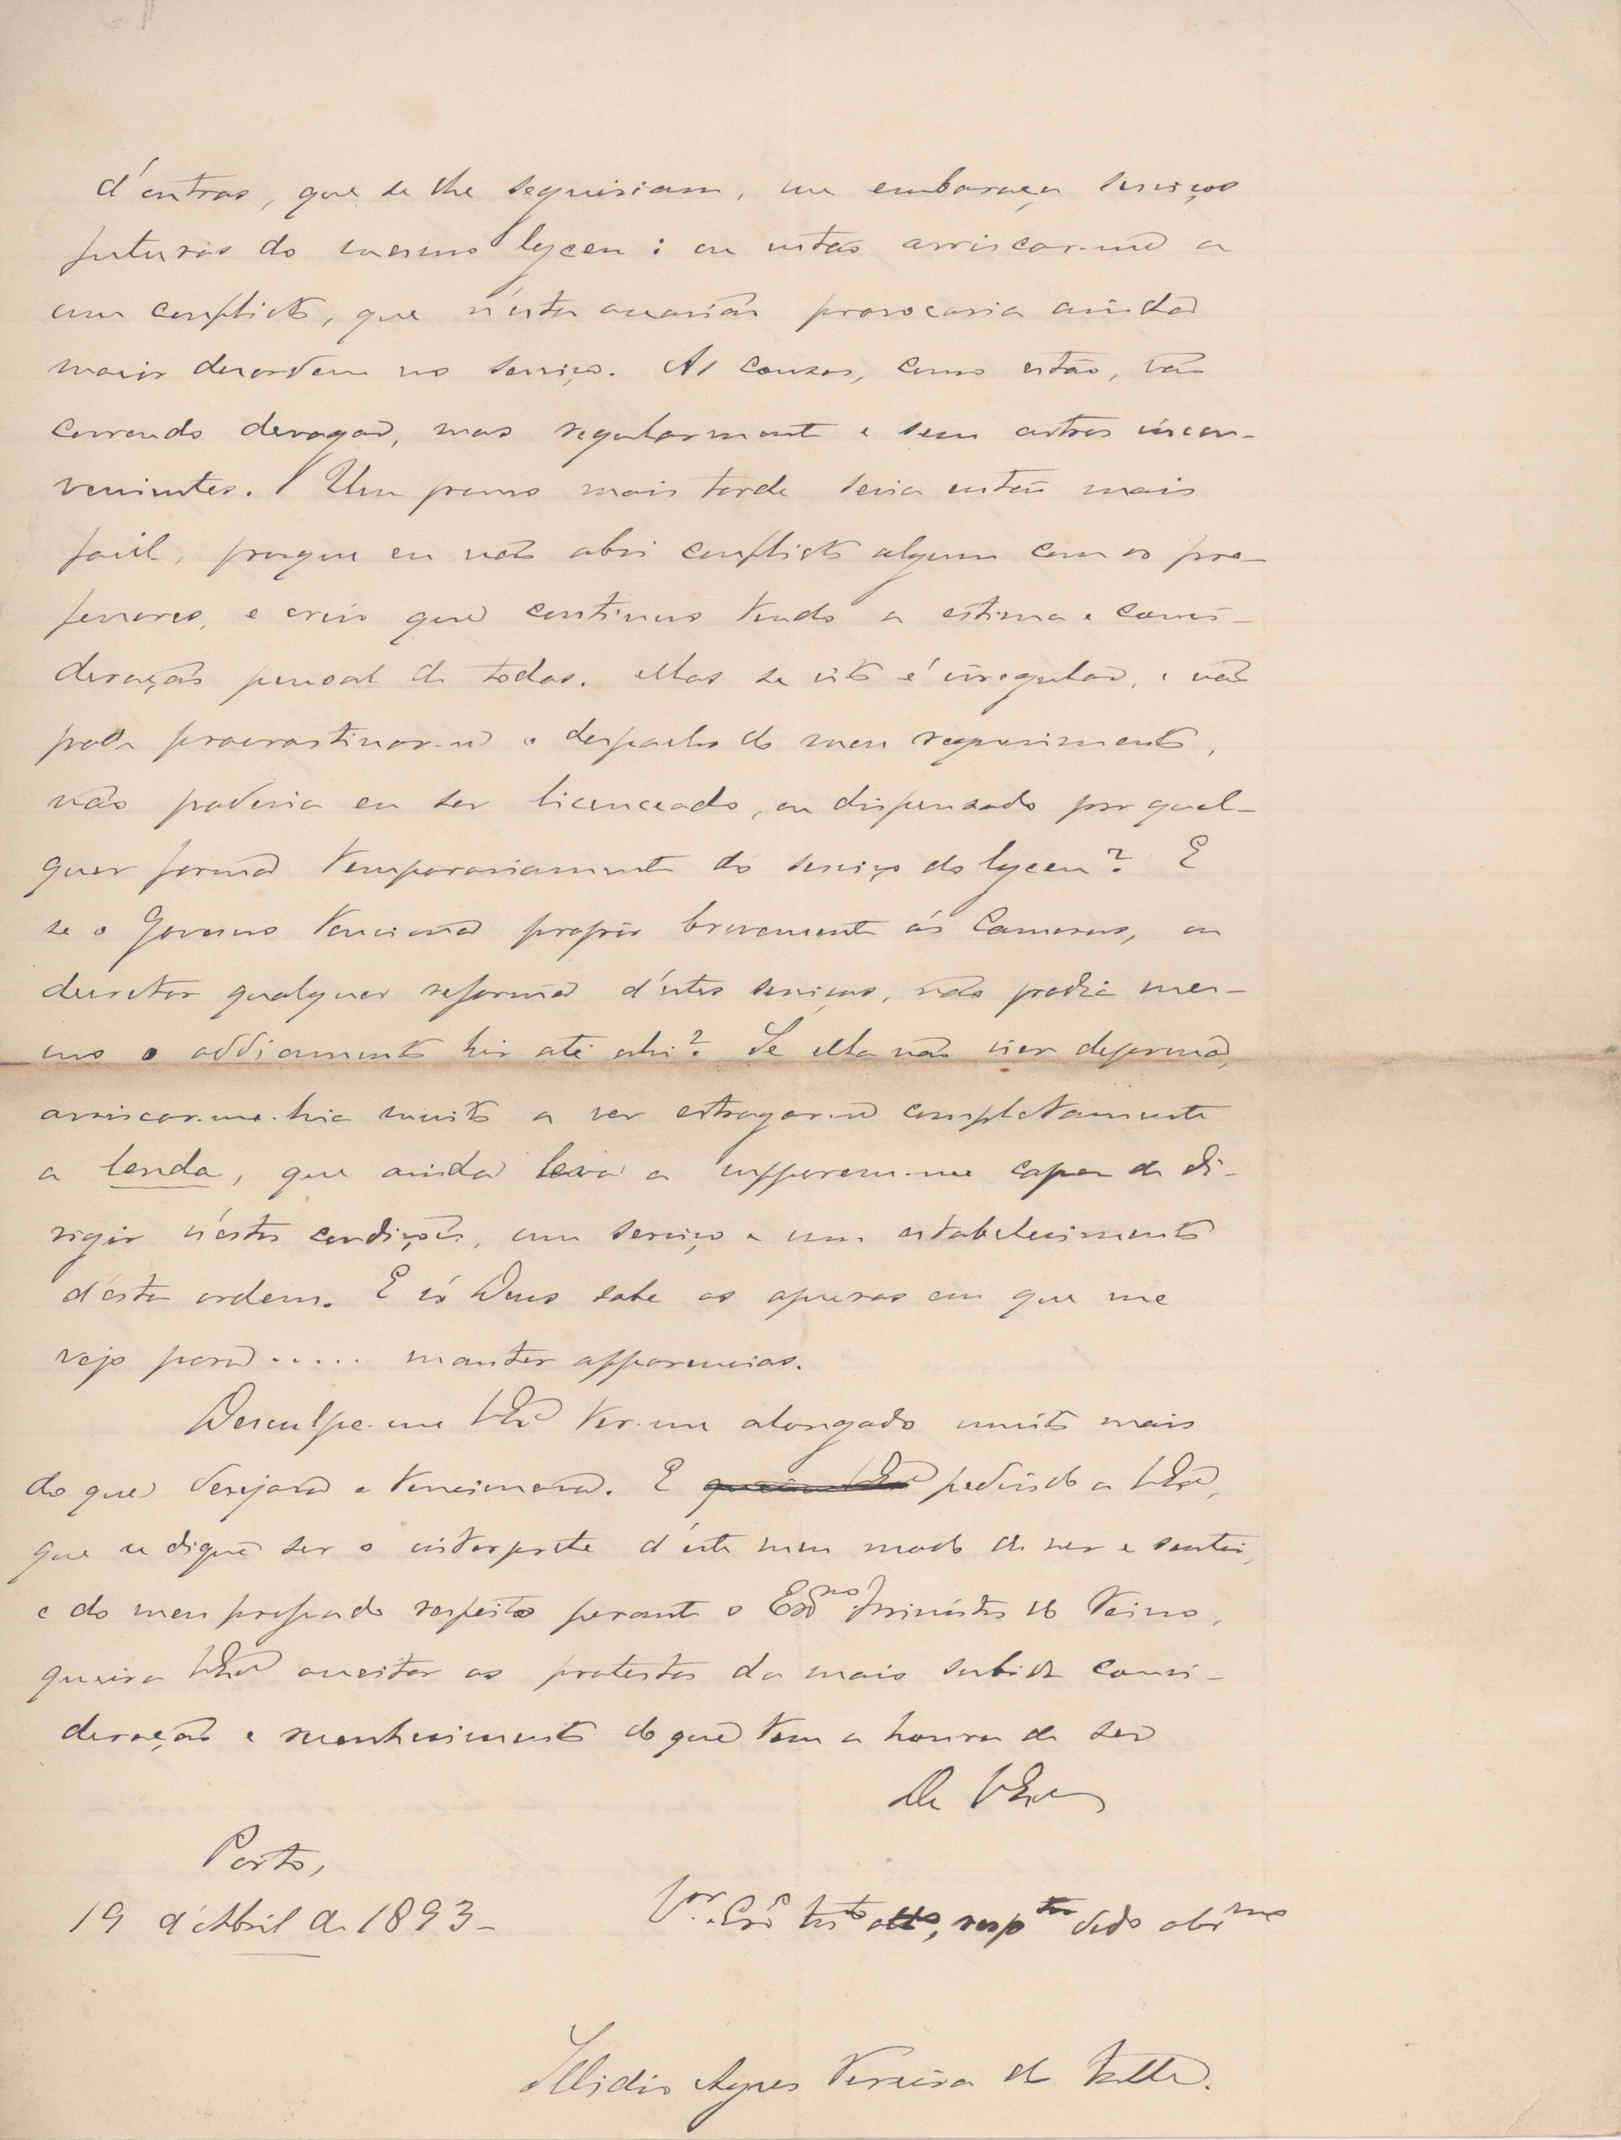 d'outras, que se lhe seguiriam, me embaraça serviços
futuros do mesmo lyceu: ou então arriscar-me a
um conflicto, que n'esta occasião provocaria ainda
maior desordem no serviço. As cousas, como estão, vão
correndo devagar, mas regularmente e sem outros incon-
venientes. Um pouco mais tarde seria então mais
facil, porque eu não abri conflicto algum com os pro-
fessores, e creio que continuo tendo a estima e consi-
deração pessoal de todos. Mas se isto é irregular, e não
pode procrastinar-se o despacho do meu requerimento,
não poderia eu ser licenceado, ou dispensado por qual-
quer forma temporariamente do serviço do lyceu? E
se o Governo tenciona propôr brevemente ás Camaras, ou
decretar qualquer reforma d'estes serviços, não podia mes-
mo o addiamento hir até ahi? Se ella não vier de forma,
arriscar-me-hia muito a ver estragar-se completamente
a lenda, que ainda leva a supporem-me capaz de di-
rigir n'estas condições, um serviço e um estabelecimento
d'esta ordem. E só Deus sabe os apuros em que me
vejo para..... manter apparencias.
Desculpe-me V. Exª ter-me alongado muito mais
do que desejara e tencionara. E pedindo a V. Exª,
que se digne ser o interprete d'este meu modo de ver e sentir,
e do meu profundo respeito perante o Exmo Ministro do Reino,
queira V. Exª acceitar os protestos da mais subida consi-
deração e reconhecimento do que tem a honra de ser
De V. Exª
Porto,
19 d'Abril de 1893-
atto, resp cdo obrmo
Illidio Ayres Pereira do Valle.